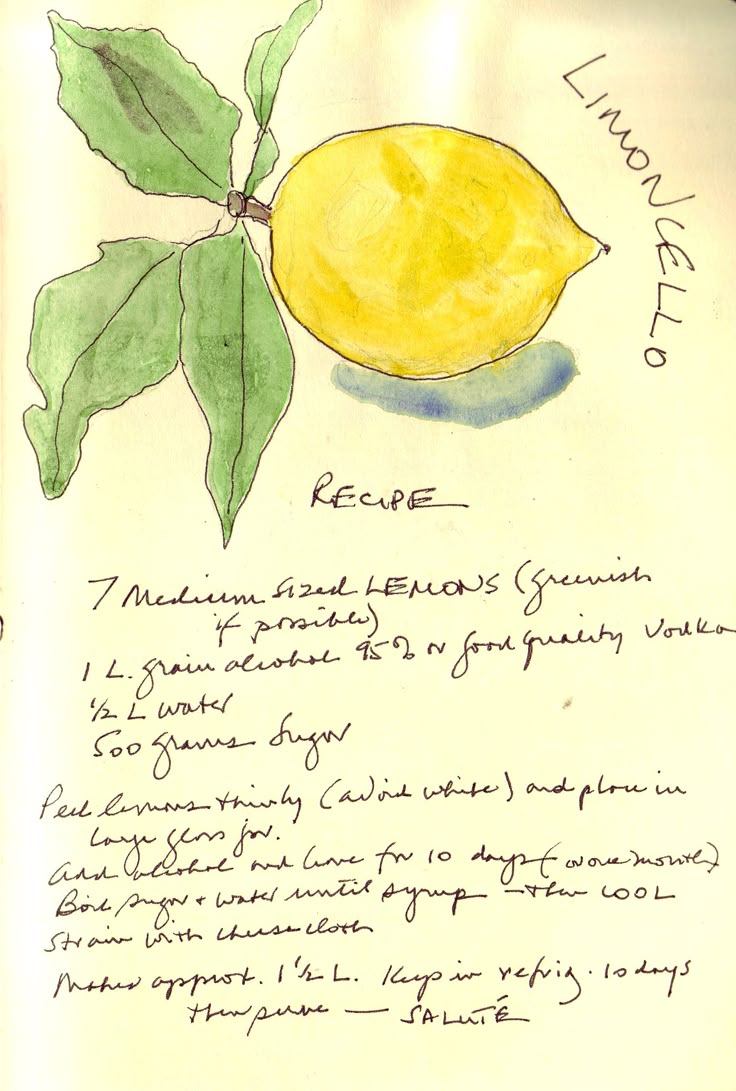 LIMONCELLO
RECIPE
7 Medium Sized LEMONS (greenish
if possible)
1 L. grain alcohol 95% or good quality Vodka
½ L water
500 grams Sugar
Peel lemons thinly (avoid white) and place in
large glass jar.
Add alcohol and leave for 10 days (or one month)
Boil sugar + water until syrup – then COOL
Strain with cheese cloth
Makes approx. 1 ½ L. Keep in refrig. 10 days
then serve — SALUTÉ